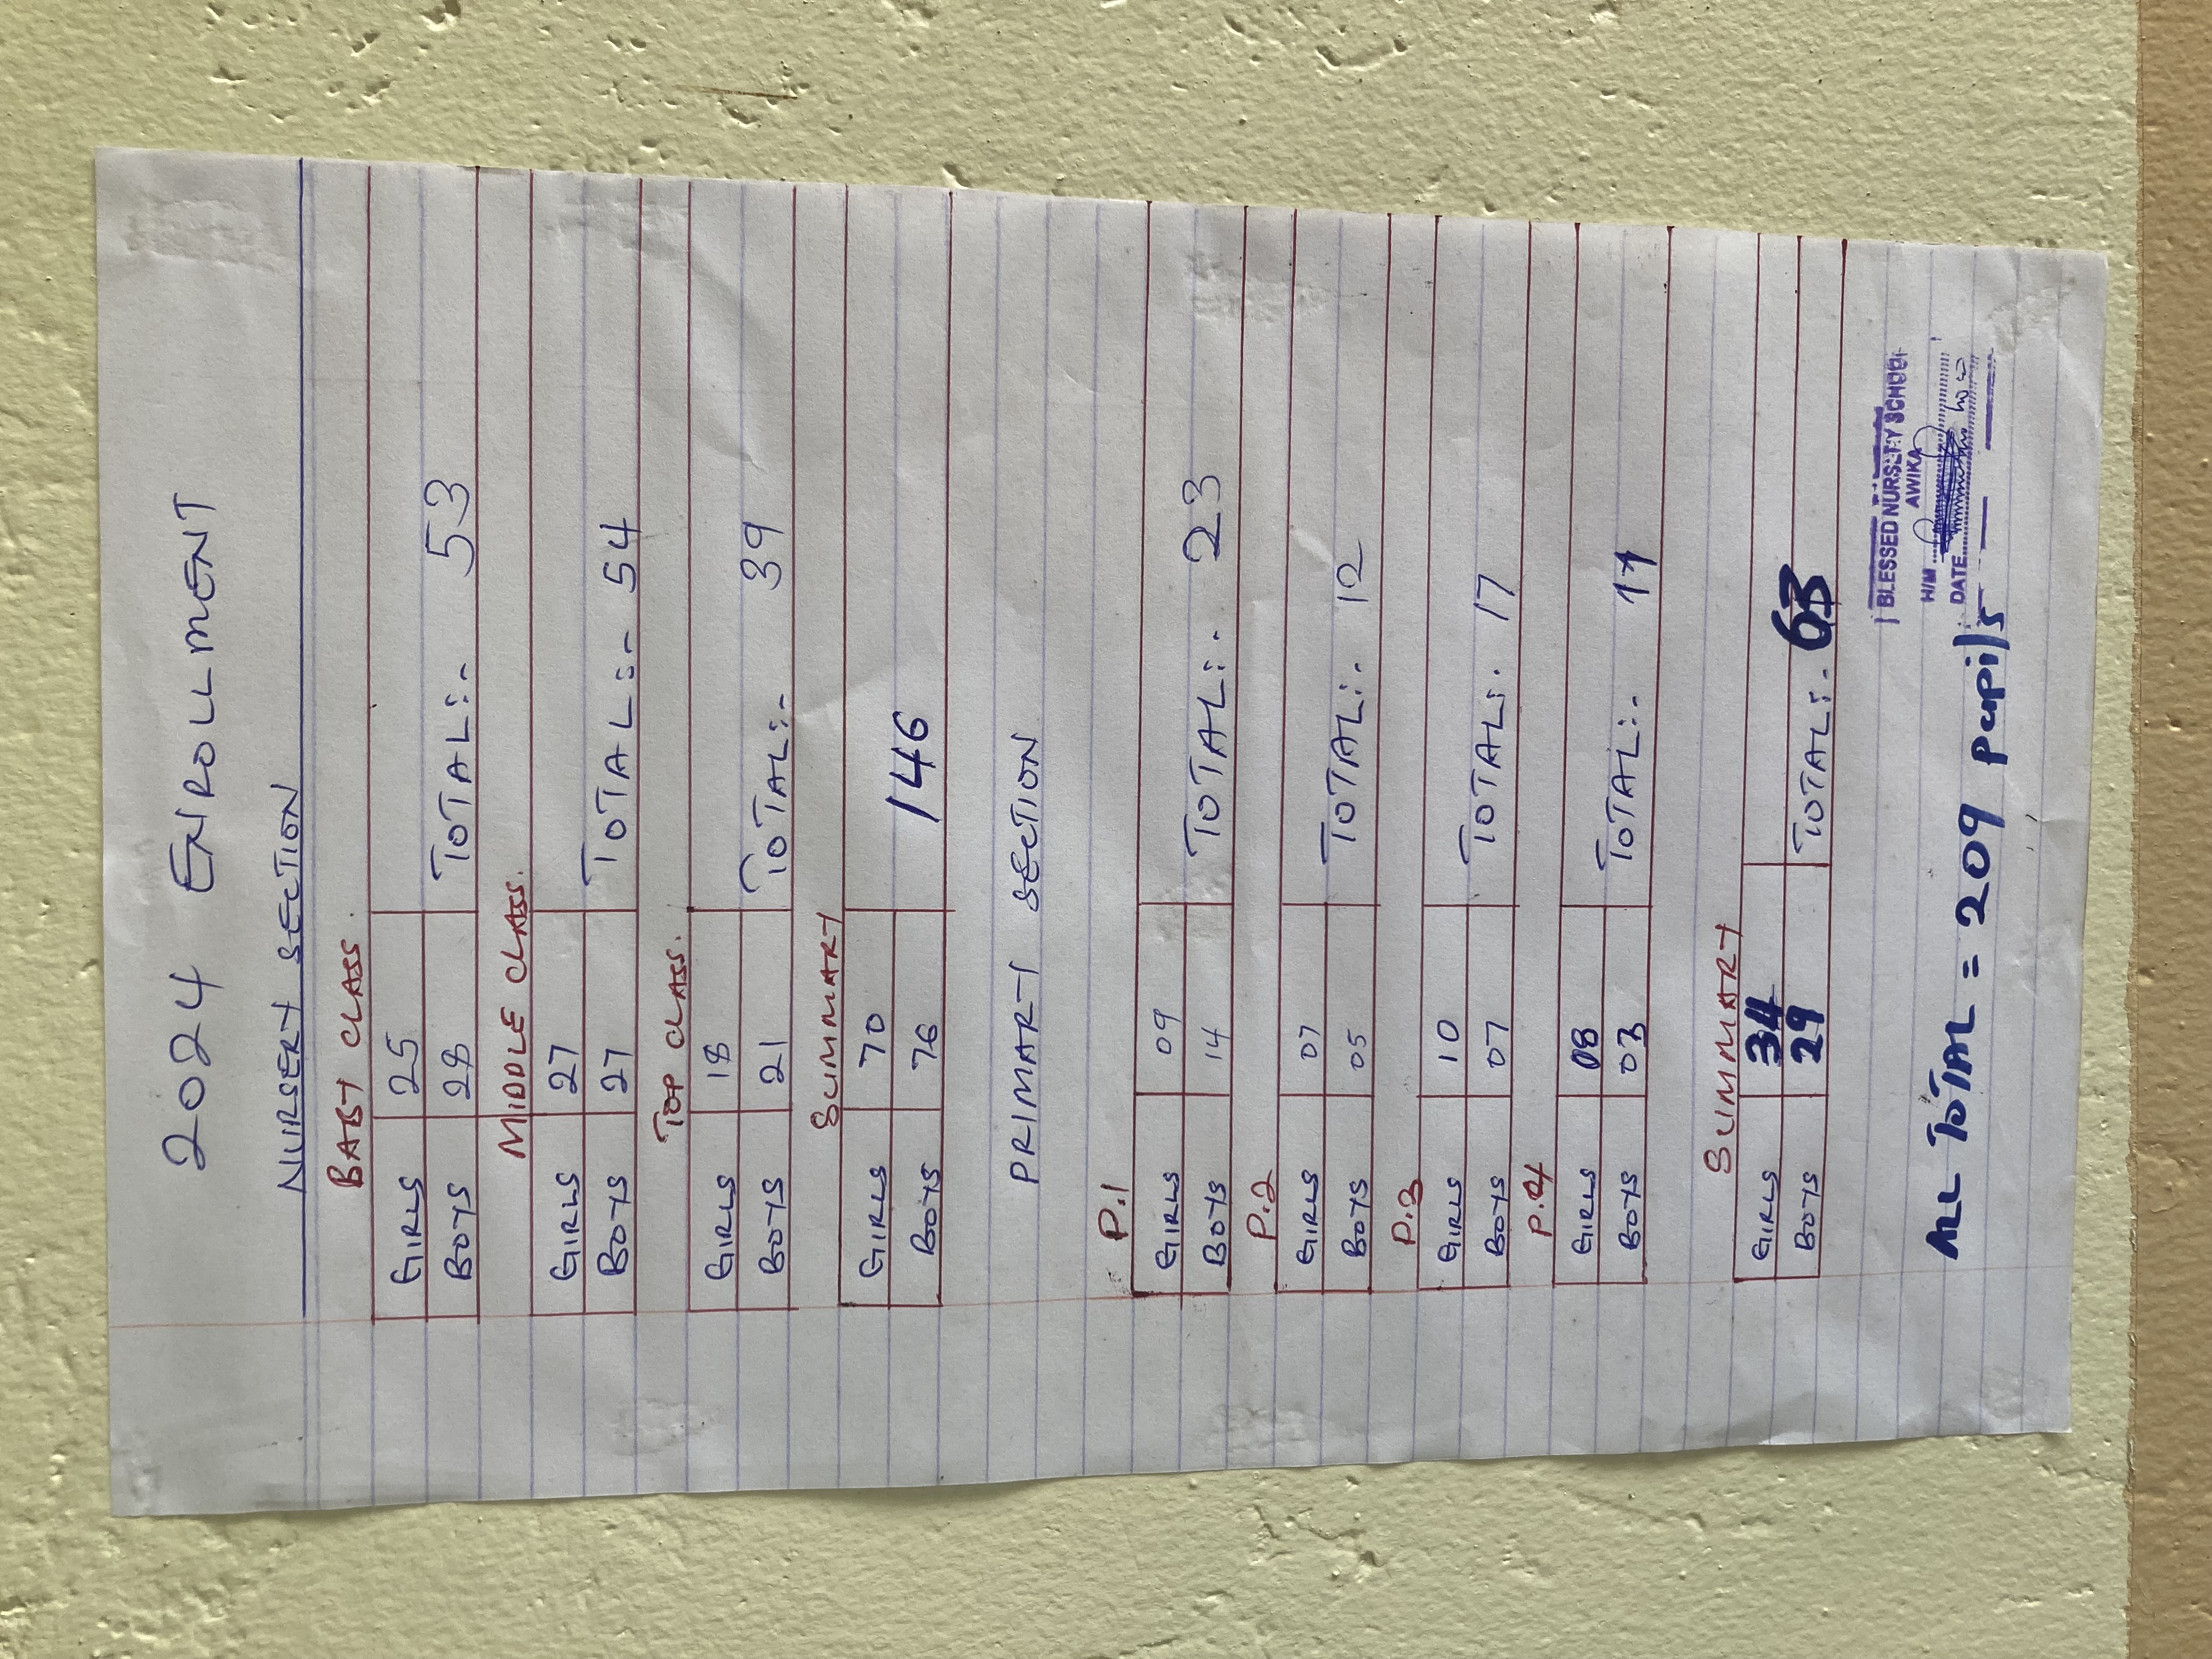 2024 ENROLLMENT
NURSERY SECTION
BABY CLASS.
GIRLS 25
BOYS 28 TOTAL:- 53
MIDDLE CLASS.
GIRLS 27
BOYS 27 TOTAL:- 54
TOP CLASS.
GIRLS 18
BOYS 21 TOTAL:- 39
SUMMARY
GIRLS 70
BOYS 76 146
PRIMARY SECTION
P.1
GIRLS 09
BOYS 14 TOTAL:- 23
P.2
GIRLS 07
BOYS 05 TOTAL:- 12
P.3
GIRLS 10
BOYS 07 TOTAL:- 17
P.4
GIRLS 08
BOYS 03 TOTAL:- 11
SUMMARY
GIRLS 34
BOYS 29 TOTAL:- 63
BLESSED NURSERY SCHOOL
AWIKA
H/M
DATE
ALL TOTAL = 209 pupils